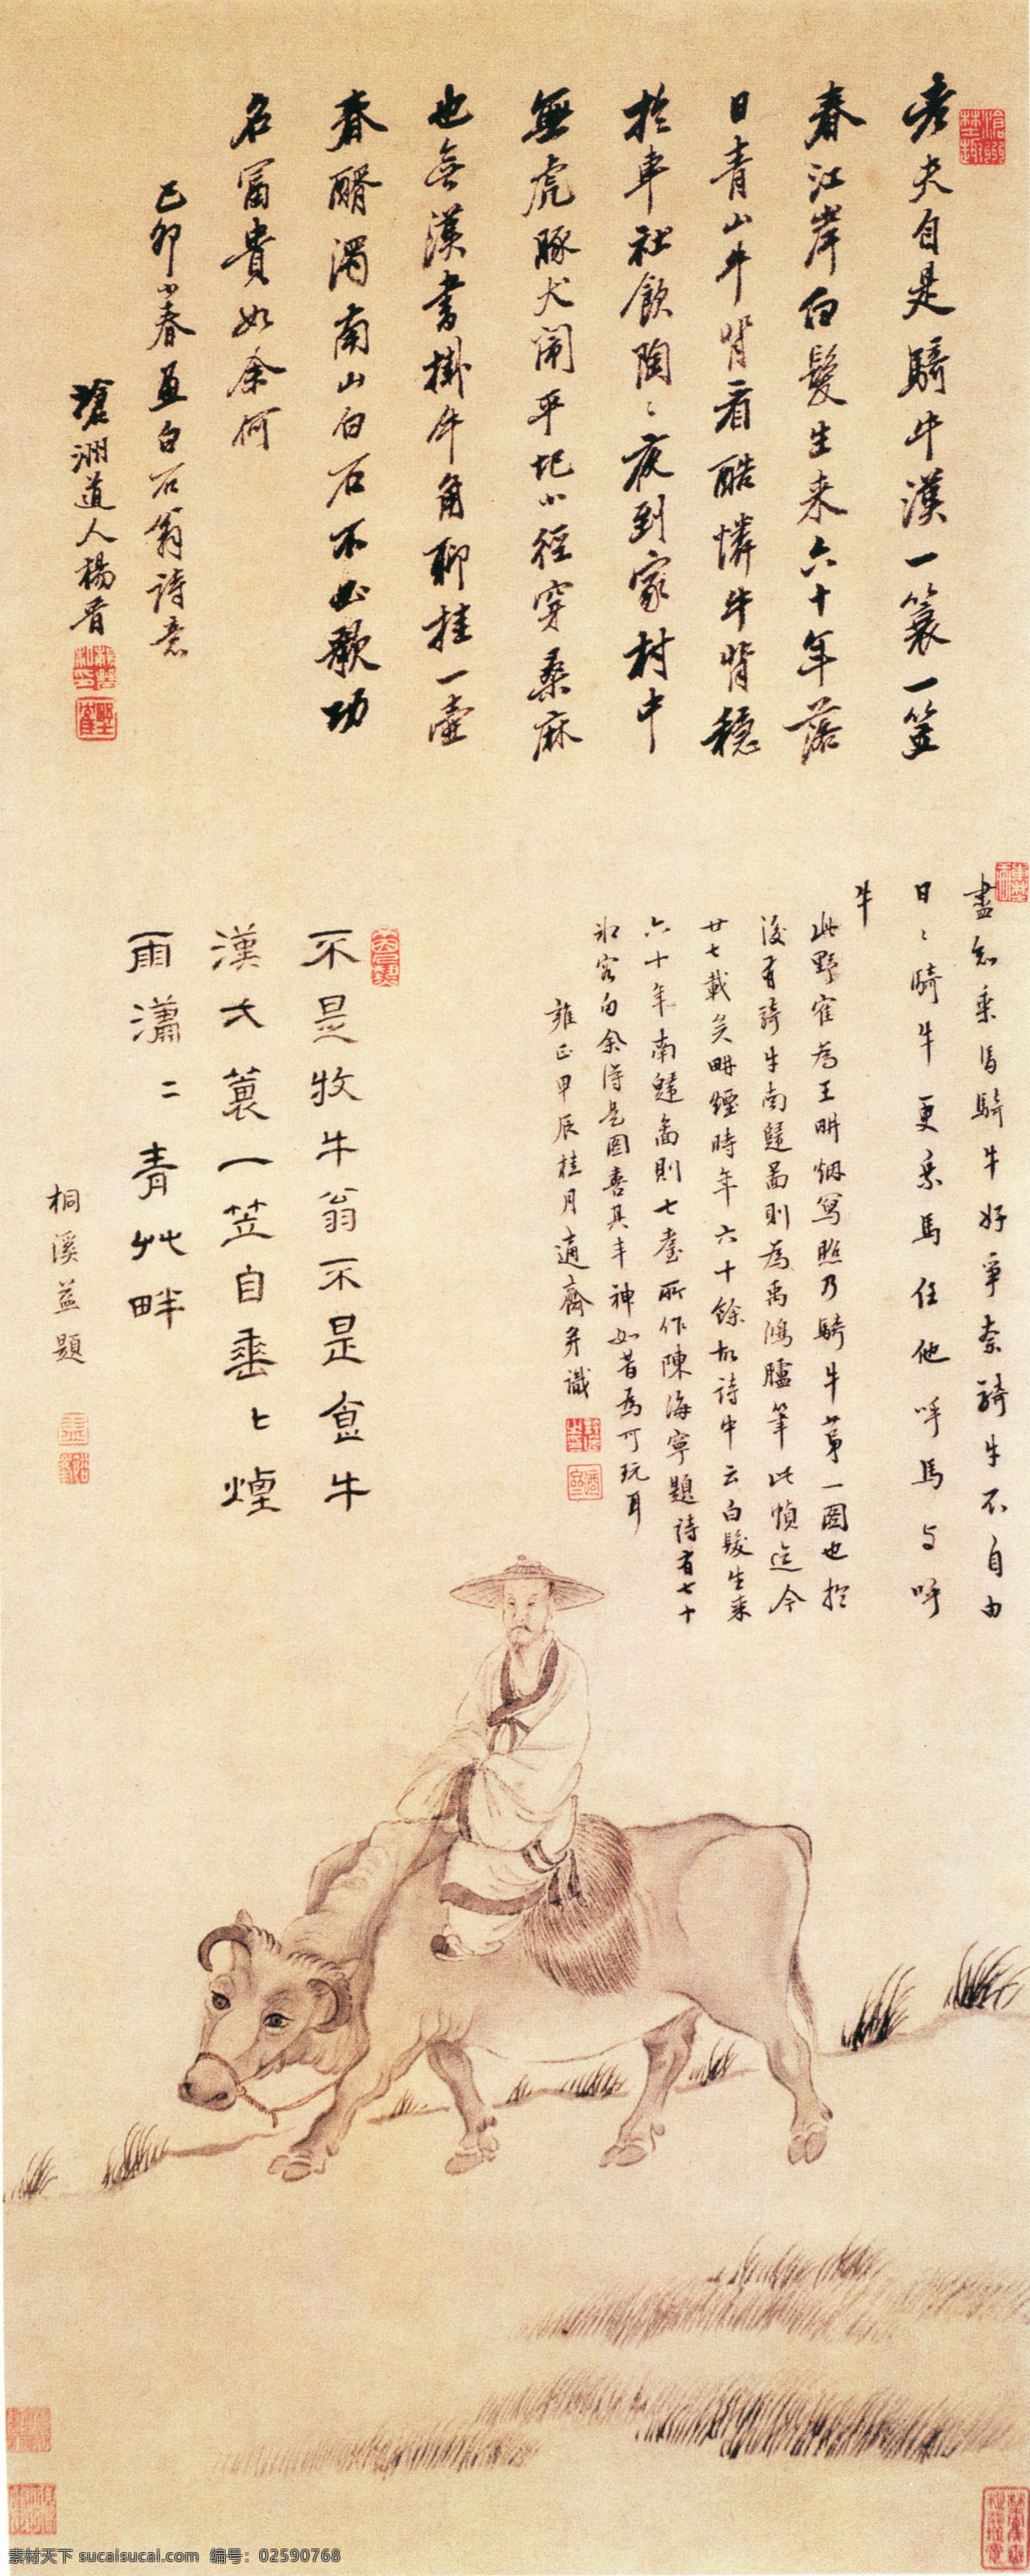 老夫自是騎牛漢一簑一笠
春江岸白髮生来六十年落
日青山牛背看酷憐牛背穩
於車社飲陶〻夜到家村中
無虎豚犬閙平圯小徑穿桑麻
也無漢書掛牛角聊挂一壺
春醑濁南山白石不必歌功
名富貴如余何
己卯小春画白石翁詩意
滄洲道人楊晋
盡知乗馬騎牛好争奈騎牛不自由
日〻騎牛更乗馬任他呼馬与呼
牛
此野崔為王畊烟寫照乃騎牛第一圖也於
後有騎牛南歸圖則為禹鴻臚筆此幀迄今
廿七載矣畊煙時年六十餘故詩中云白髮生来
六十年南歸圖則七耋所作陳海寧題詩有七十
余得是图喜其丰神如昔為可玩耳
雍正甲辰桂月適齋并識
不是牧牛翁不是食牛
漢大蓑一笠自垂〻煙
雨瀟〻青艸畔
桐溪益題
素材天下 sucaisucai.com 编号：02590768